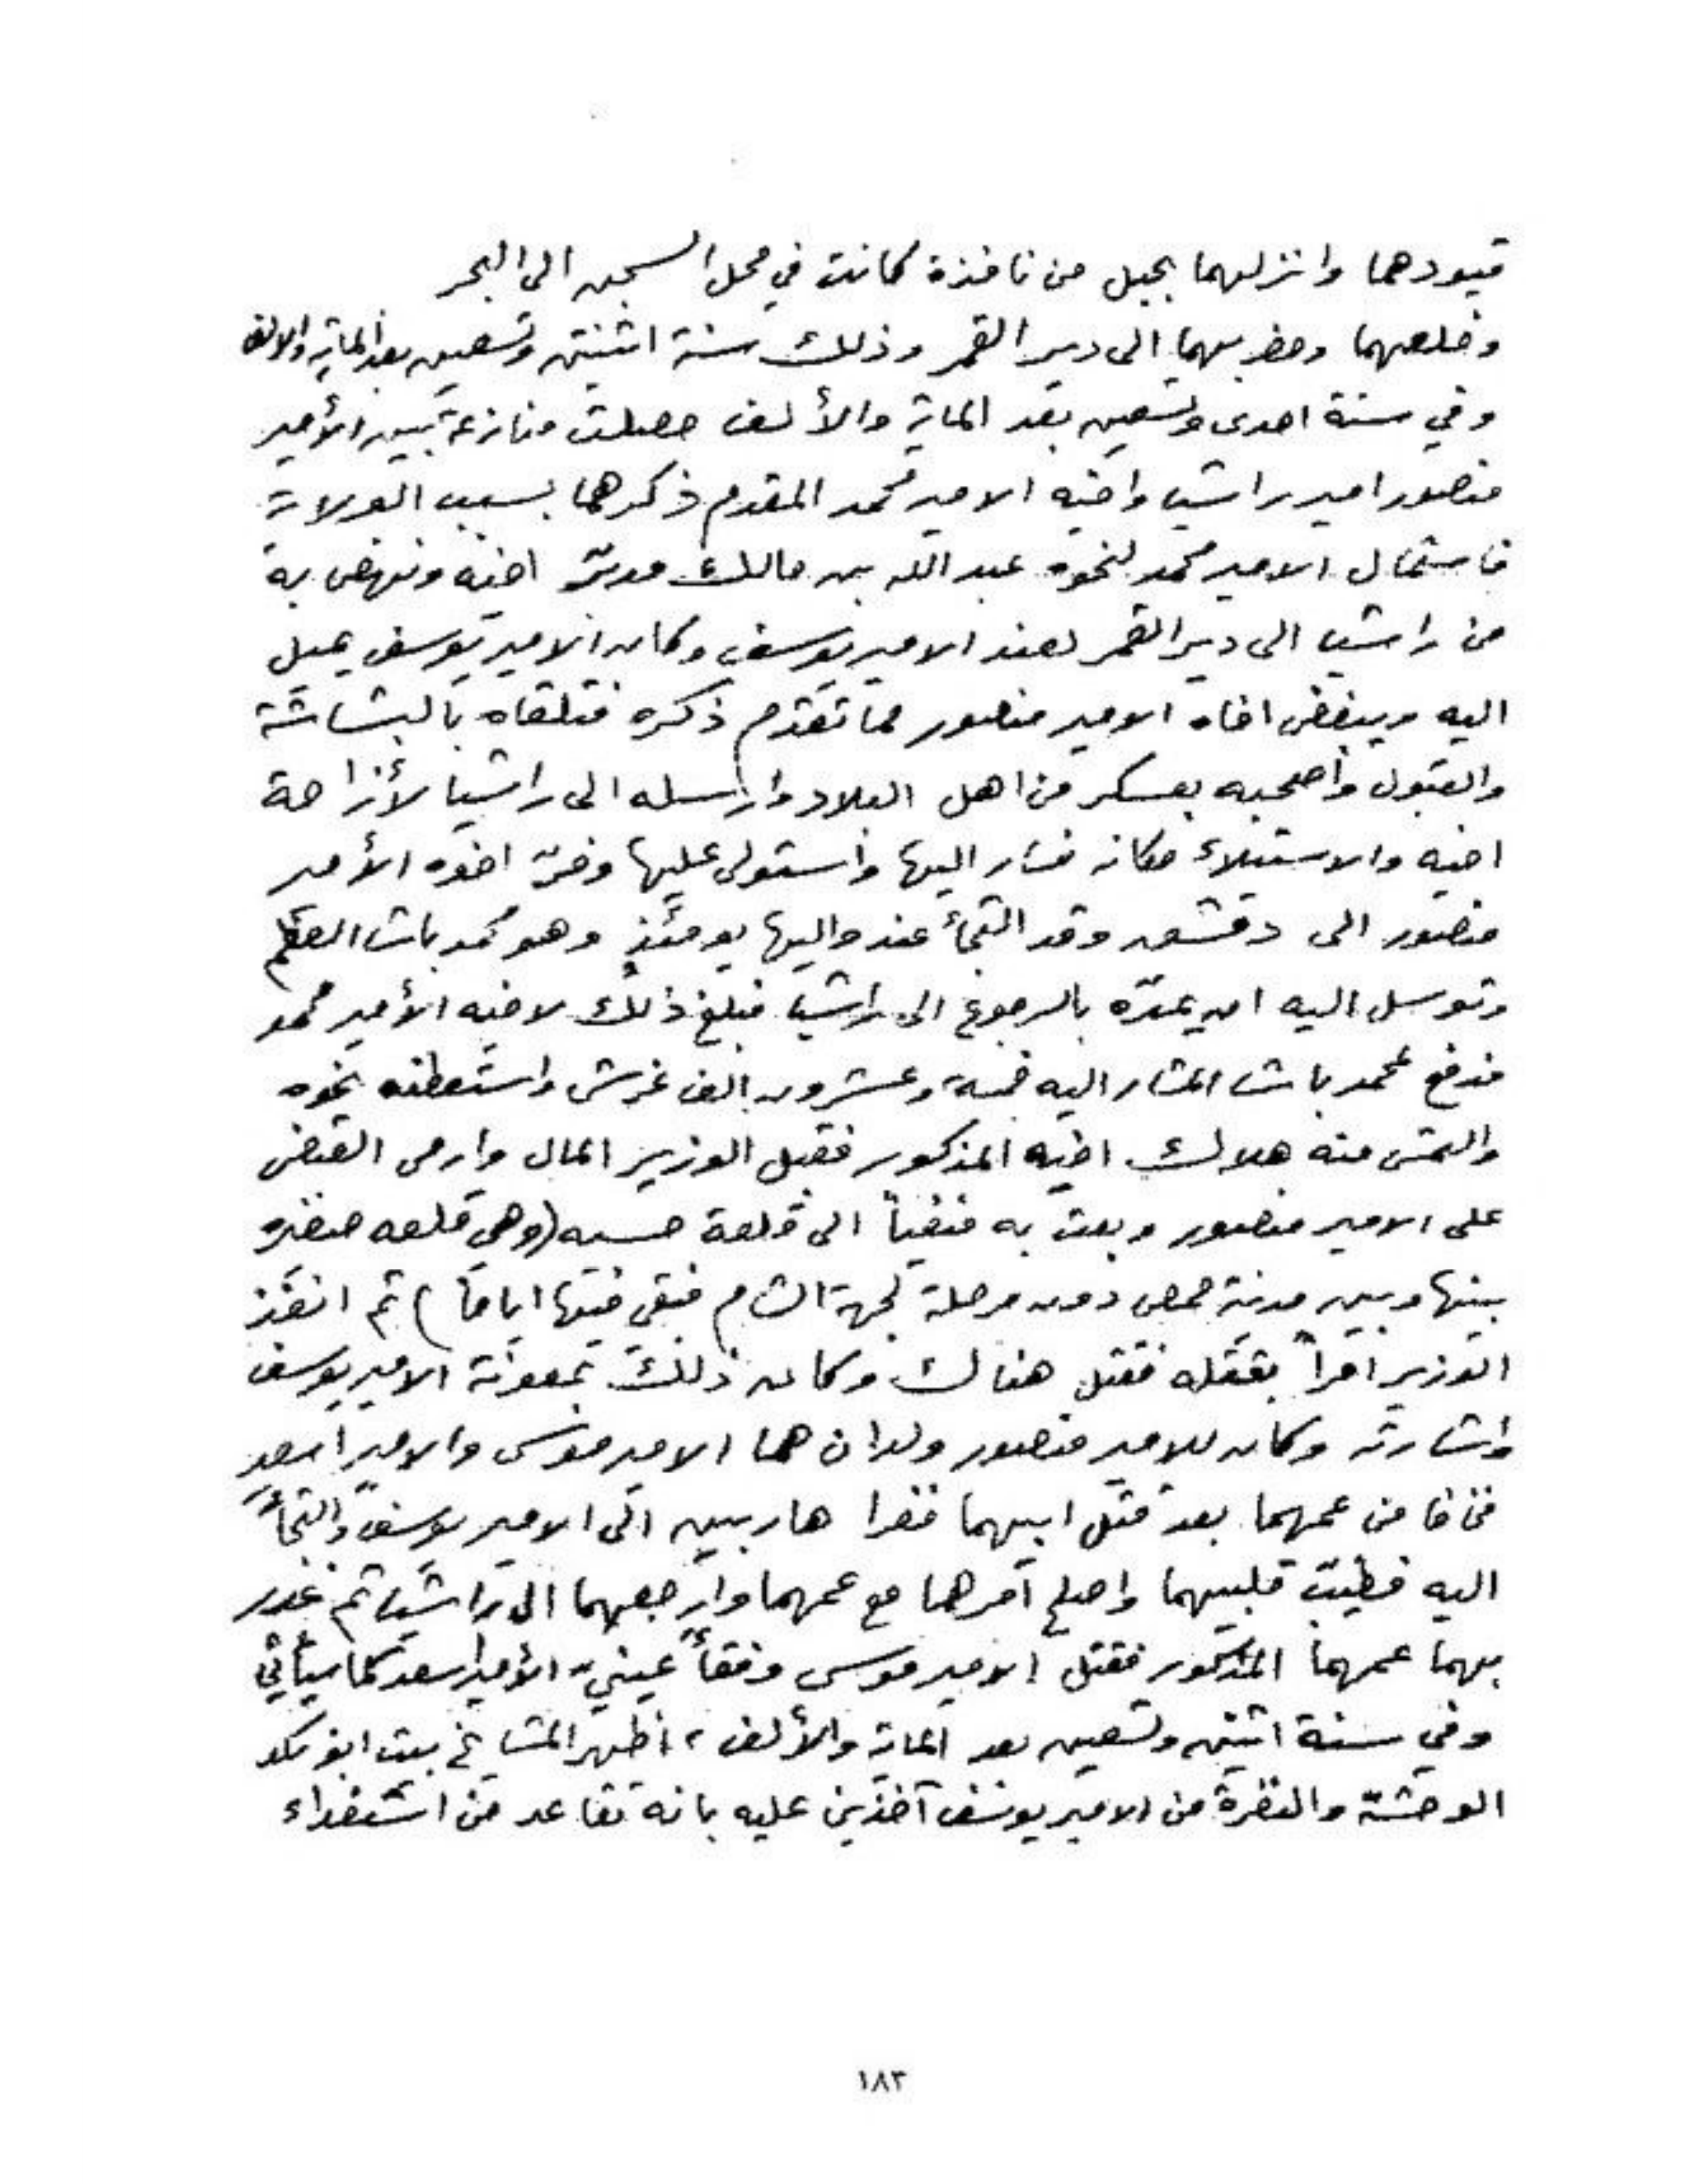 قيودهما وانزلهما بحبل من نافذة كانت في محل السجن الى البحر
وخلصهما وحضر بهما الى دير القمر وذلك سنة اثنتين وتسعين بعد الماية والالف
وفي سنة احدى وتسعين بعد الماية والألف حصلت منازعة بين الأمير
منصور امير راشيا واخيه الامير محمد المقدم ذكرهما بسبب الولاية
فاستمال الامير محمد لنحوه عبد الله بن مالك مدبّر اخيه ونهض به
من راشيا الى دير القمر لعند الامير يوسف وكان الامير يوسف يميل
اليه ويبغض اخاه الامير منصور مما تقدم ذكره فتلقاه بالبشاشة
والقبول واصحبه بعسكر من اهل البلاد وارسله الى راشيا لأزاحة
اخيه والاستيلاء مكانه فسار اليها واستولى عليها وفرّ اخوه الأمير
منصور الى دمشق وقد التجأ عند واليها يومئذٍ وهو محمد باشا العظم
وتوسل اليه ان يمدّه بالرجوع الى راشيا فبلغ ذلك لاخيه الأمير محمد
فدفع لمحمد باشا المشار اليه خمسة وعشرون الف غرش واستعطفه نحوه
والتمس منه هلاك اخيه المذكور فقبل الوزير المال وارمى القبض
على الامير منصور وبعث به منفياً الى قلعة حسيه (وهي قلعه صغيره
بينها وبين مدينة حمص دون مرحلة لجهة الشام فبقي فيها اياماً) ثم انفذ
الوزير امراً بقتله فقتل هناك وكان ذلك بمعونة الامير يوسف
واشارته وكان للامير منصور ولدان هما الامير موسى والامير اسعد
فخافا من عمهما بعد قتل ابيهما ففرا هاربين الى الامير يوسف والتجأ
اليه فطيّب قلبيهما واصلح امرهما مع عمهما وارجعهما الى راشيا ثم غدر
بهما عمهما المذكور فقتل الامير موسى وفقأ عينيّ الأمير اسعد كما سيأتي
وفي سنة اثنين وتسعين بعد الماية والألف، اظهر المشايخ بيت ابو نكد
الوحشة والنفرة من الامير يوسف آخذين عليه بانه تقاعد من استفداء
١٨٣